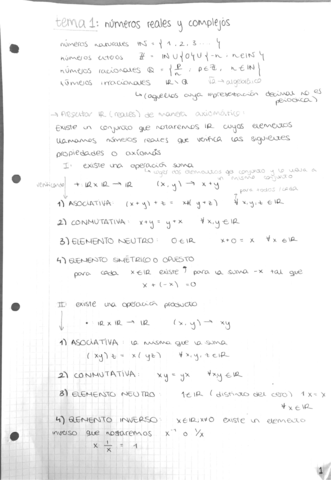 tema 1: números reales y complejos
números naturales ℕ = { 1, 2, 3 ... }
números enteros ℤ = ℕ U {0} U {-n : n ∈ ℕ }
números racionales ℚ = { p/n : p ∈ ℤ, n ∈ ℕ }
números irracionales ℝ - ℚ
↳ (aquellos cuya representación decimal no es periódica)
→ Presentar ℝ (reales) de manera axiomática:
Existe un conjunto que notaremos ℝ, cuyos elementos
llamamos números reales que verifica las siguientes
propiedades o axiomas
I. existe una operación suma
+ ℝ x ℝ → ℝ (x, y) → x+y
1) ASOCIATIVA: (x+y) + z = x + (y+z) ∀ x, y, z ∈ ℝ
2) CONMUTATIVA: x+y = y+x ∀ x, y ∈ ℝ
3) ELEMENTO NEUTRO: 0 ∈ ℝ x+0 = x ∀ x ∈ ℝ
4) ELEMENTO SIMÉTRICO O OPUESTO
para cada x ∈ ℝ existe para la suma -x tal que
x + (-x) = 0
II. existe una operación producto
• ℝ x ℝ → ℝ (x, y) → xy
1) ASOCIATIVA: la misma que la suma
(xy) z = x (yz) ∀ x, y, z ∈ ℝ
2) CONMUTATIVA: xy = yx ∀ x, y ∈ ℝ
3) ELEMENTO NEUTRO: 1 ∈ ℝ (distinto del cero) 1 • x = x
∀ x ∈ ℝ
4) ELEMENTO INVERSO: x ∈ ℝ, x≠0 existe un elemento
inverso que notaremos x⁻¹ o 1/x
x 1/x = 1
1